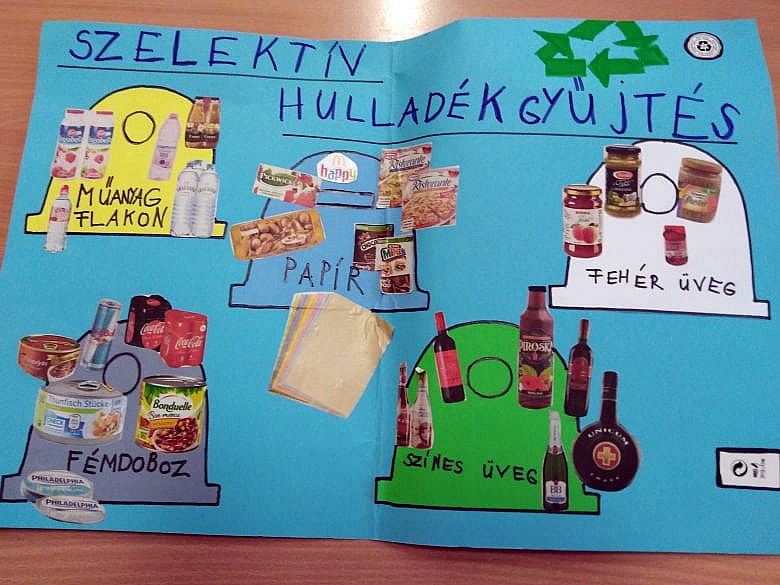 SZELEKTÍV
HULLADÉKGYŰJTÉS
MŰANYAG
FLAKON
PICKWICK
happy
Ristorante
Ristorante
PAPÍR
FEHÉR ÜVEG
Coca-Cola
Coca-Cola
Thunfisch Stücke
Bonduelle
FÉMDOBOZ
PHILADELPHIA
PHILADELPHIA
PIROSKA
SZÍNES ÜVEG
BB
UNICUM